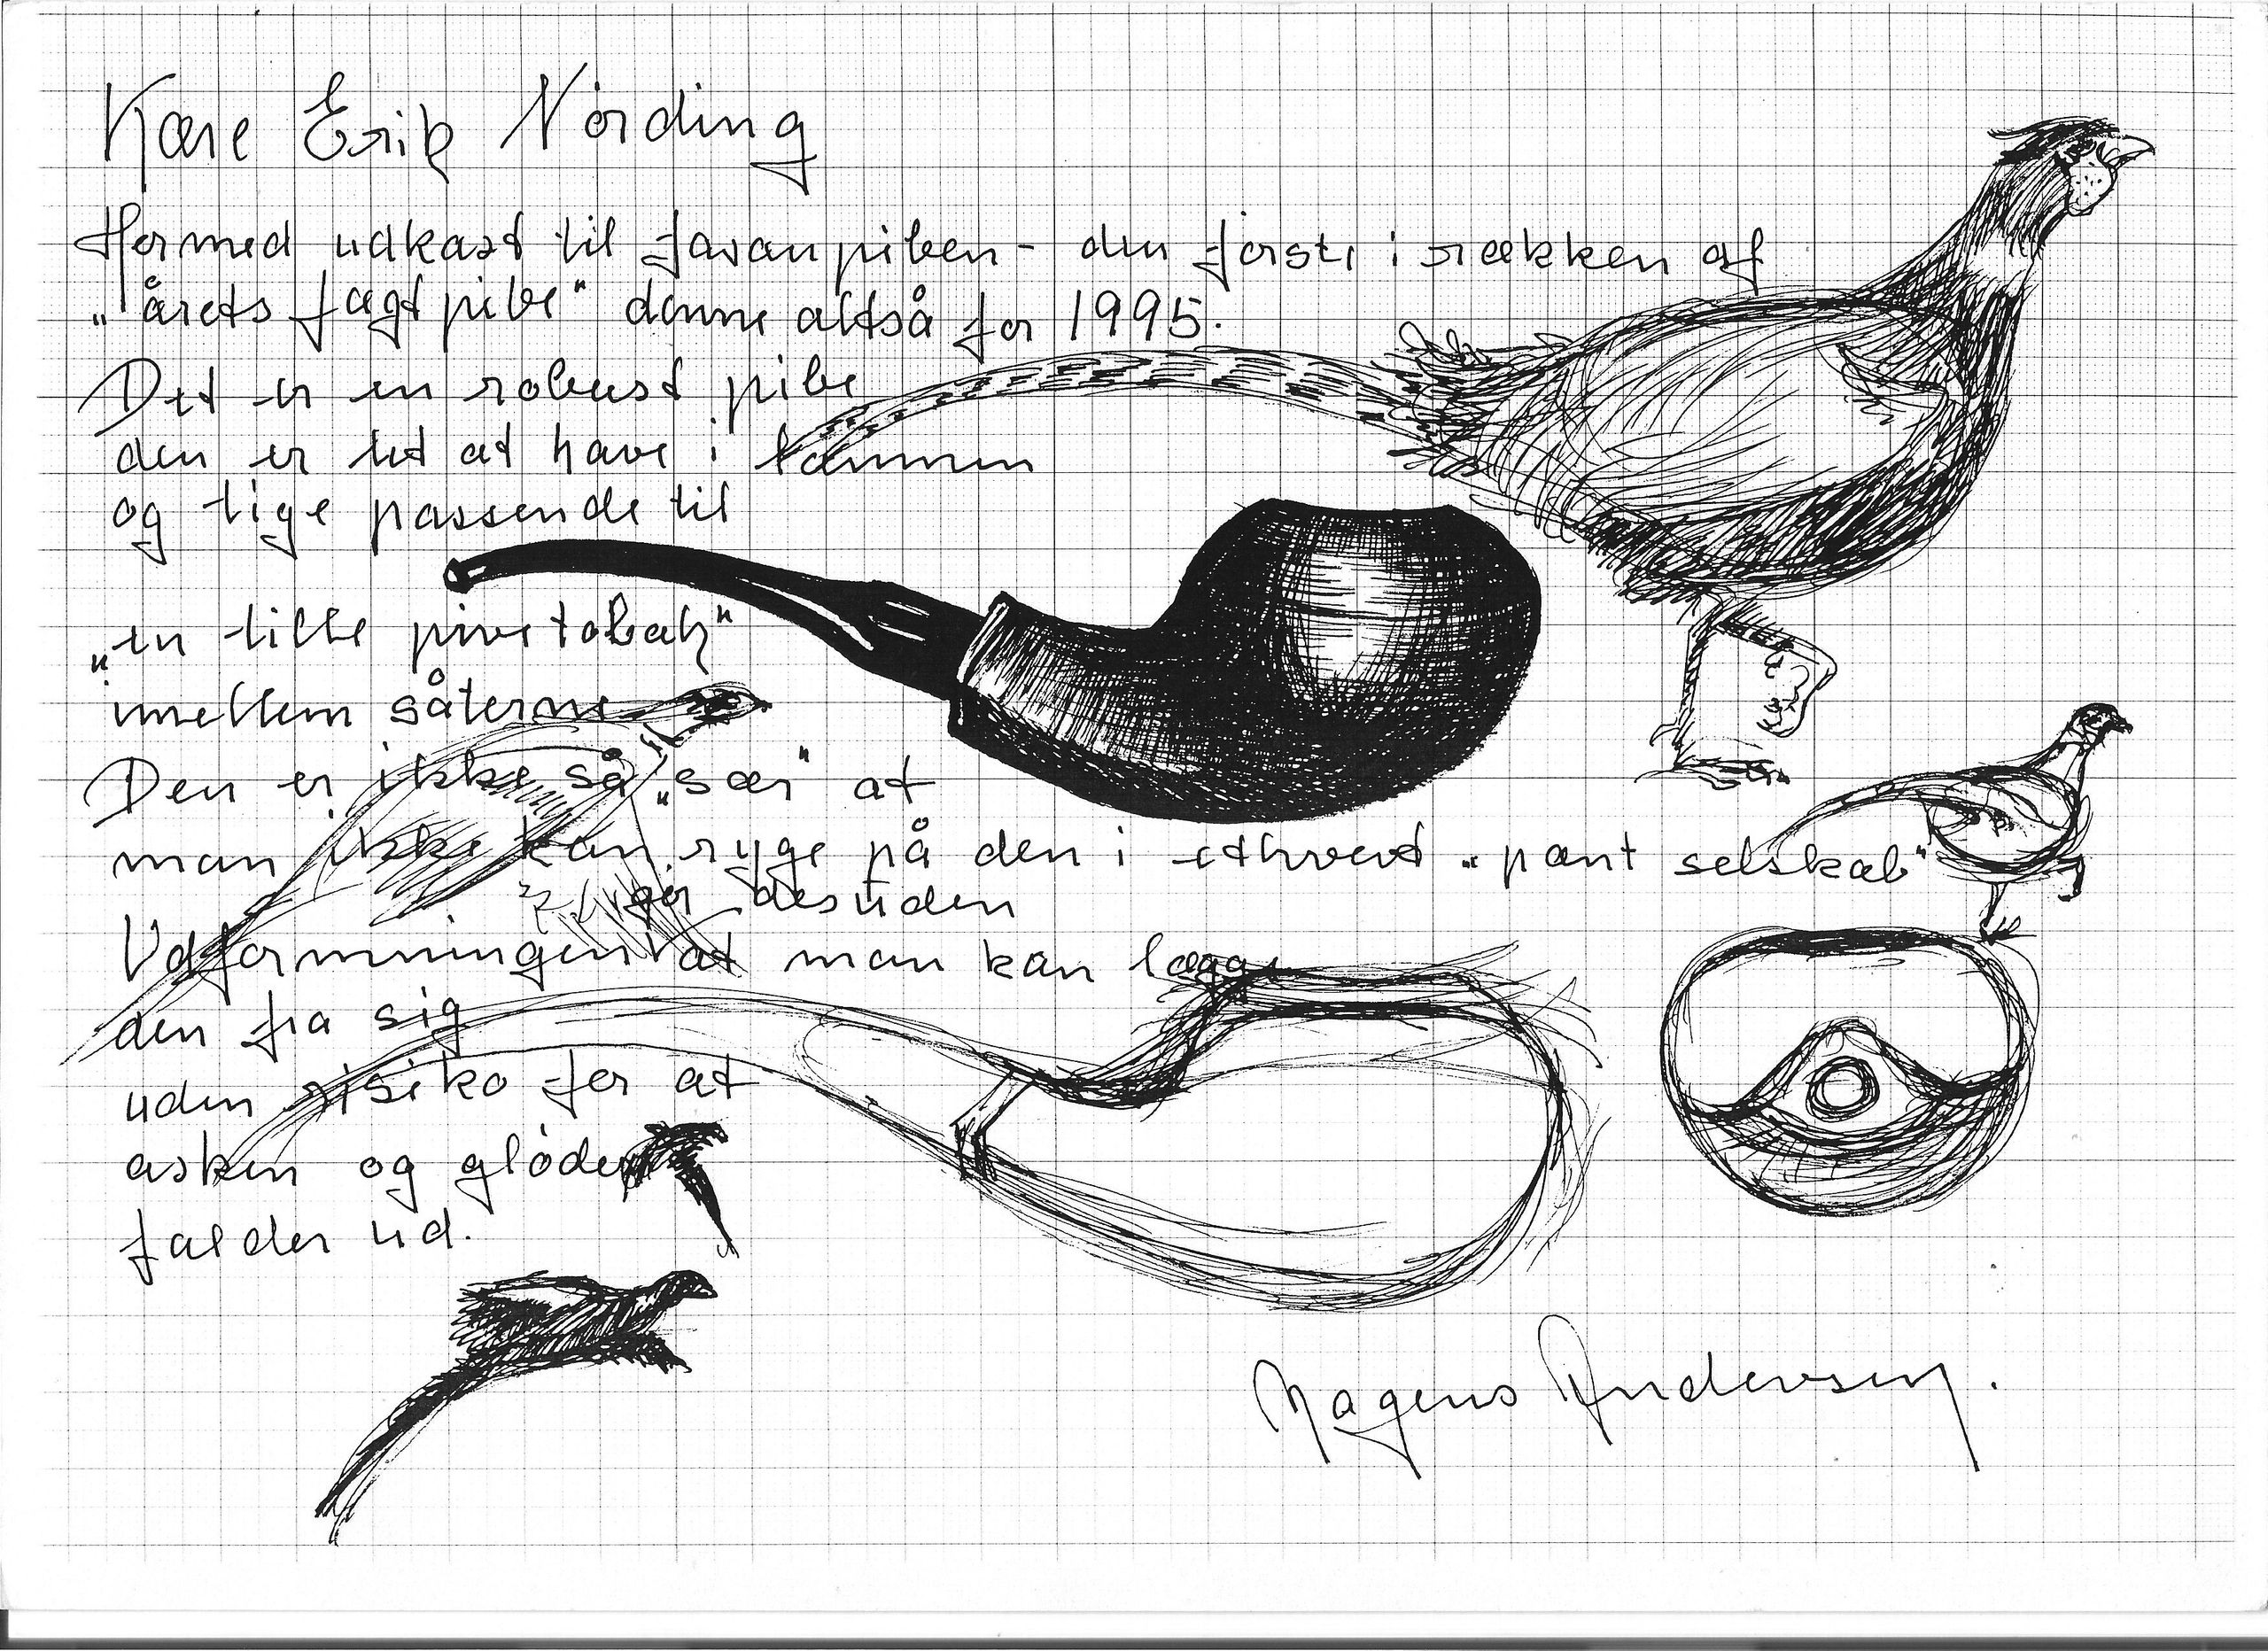 Kære Erik Nørding
Hermed udkast til fasanpiben - den første i rækken af
"årets jagtpibe" denne altså for 1995.
Det er en robust pibe
den er let at have i lommen
og lige passende til
"en lille pive tobak"
imellem såterne
Den er ikke så "sær" at
man ikke kan ryge på den i ethvert "pænt selskab"
gør desuden
Udformningen at man kan lægge
den fra sig
uden risiko for at
asken og gløder
falder ud.
Mogens Andersen.